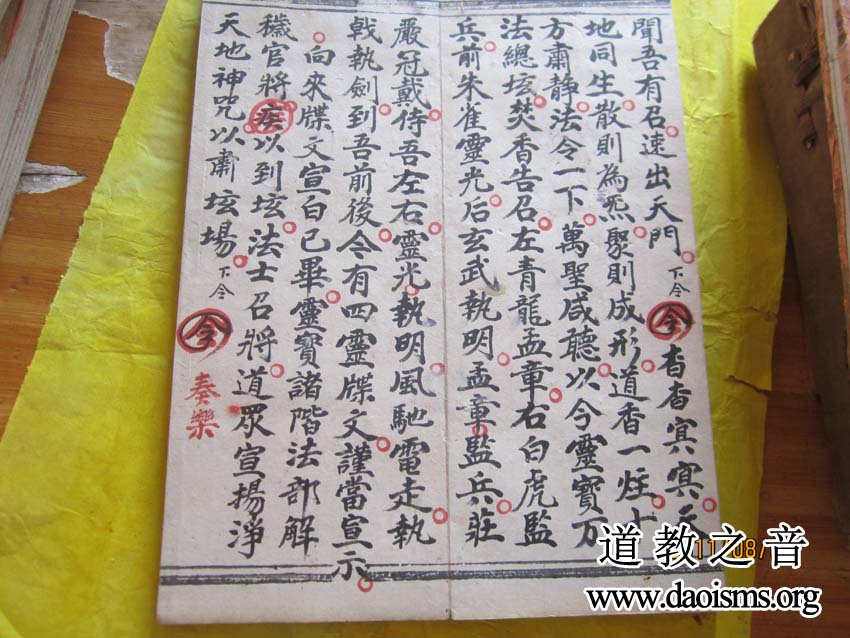 聞吾有召速出天門下令令杳杳冥冥天
地同生散則為炁聚則成形道香一炷十
方肅静法令一下萬聖咸聽以今靈寶万
法總坛焚香告召左青龍孟章右白虎監
兵前朱雀靈光后玄武執明孟章監兵莊
嚴冠戴侍吾左右靈光執明風馳電走執
戟執劍到吾前後今有四靈牒文謹當宣示
向來牒文宣白已畢靈寶諸階法部解
穢官將疾以到坛法士召將道眾宣揚淨
天地神咒以肅坛場下令令奏樂
道教之音
www.daoisms.org